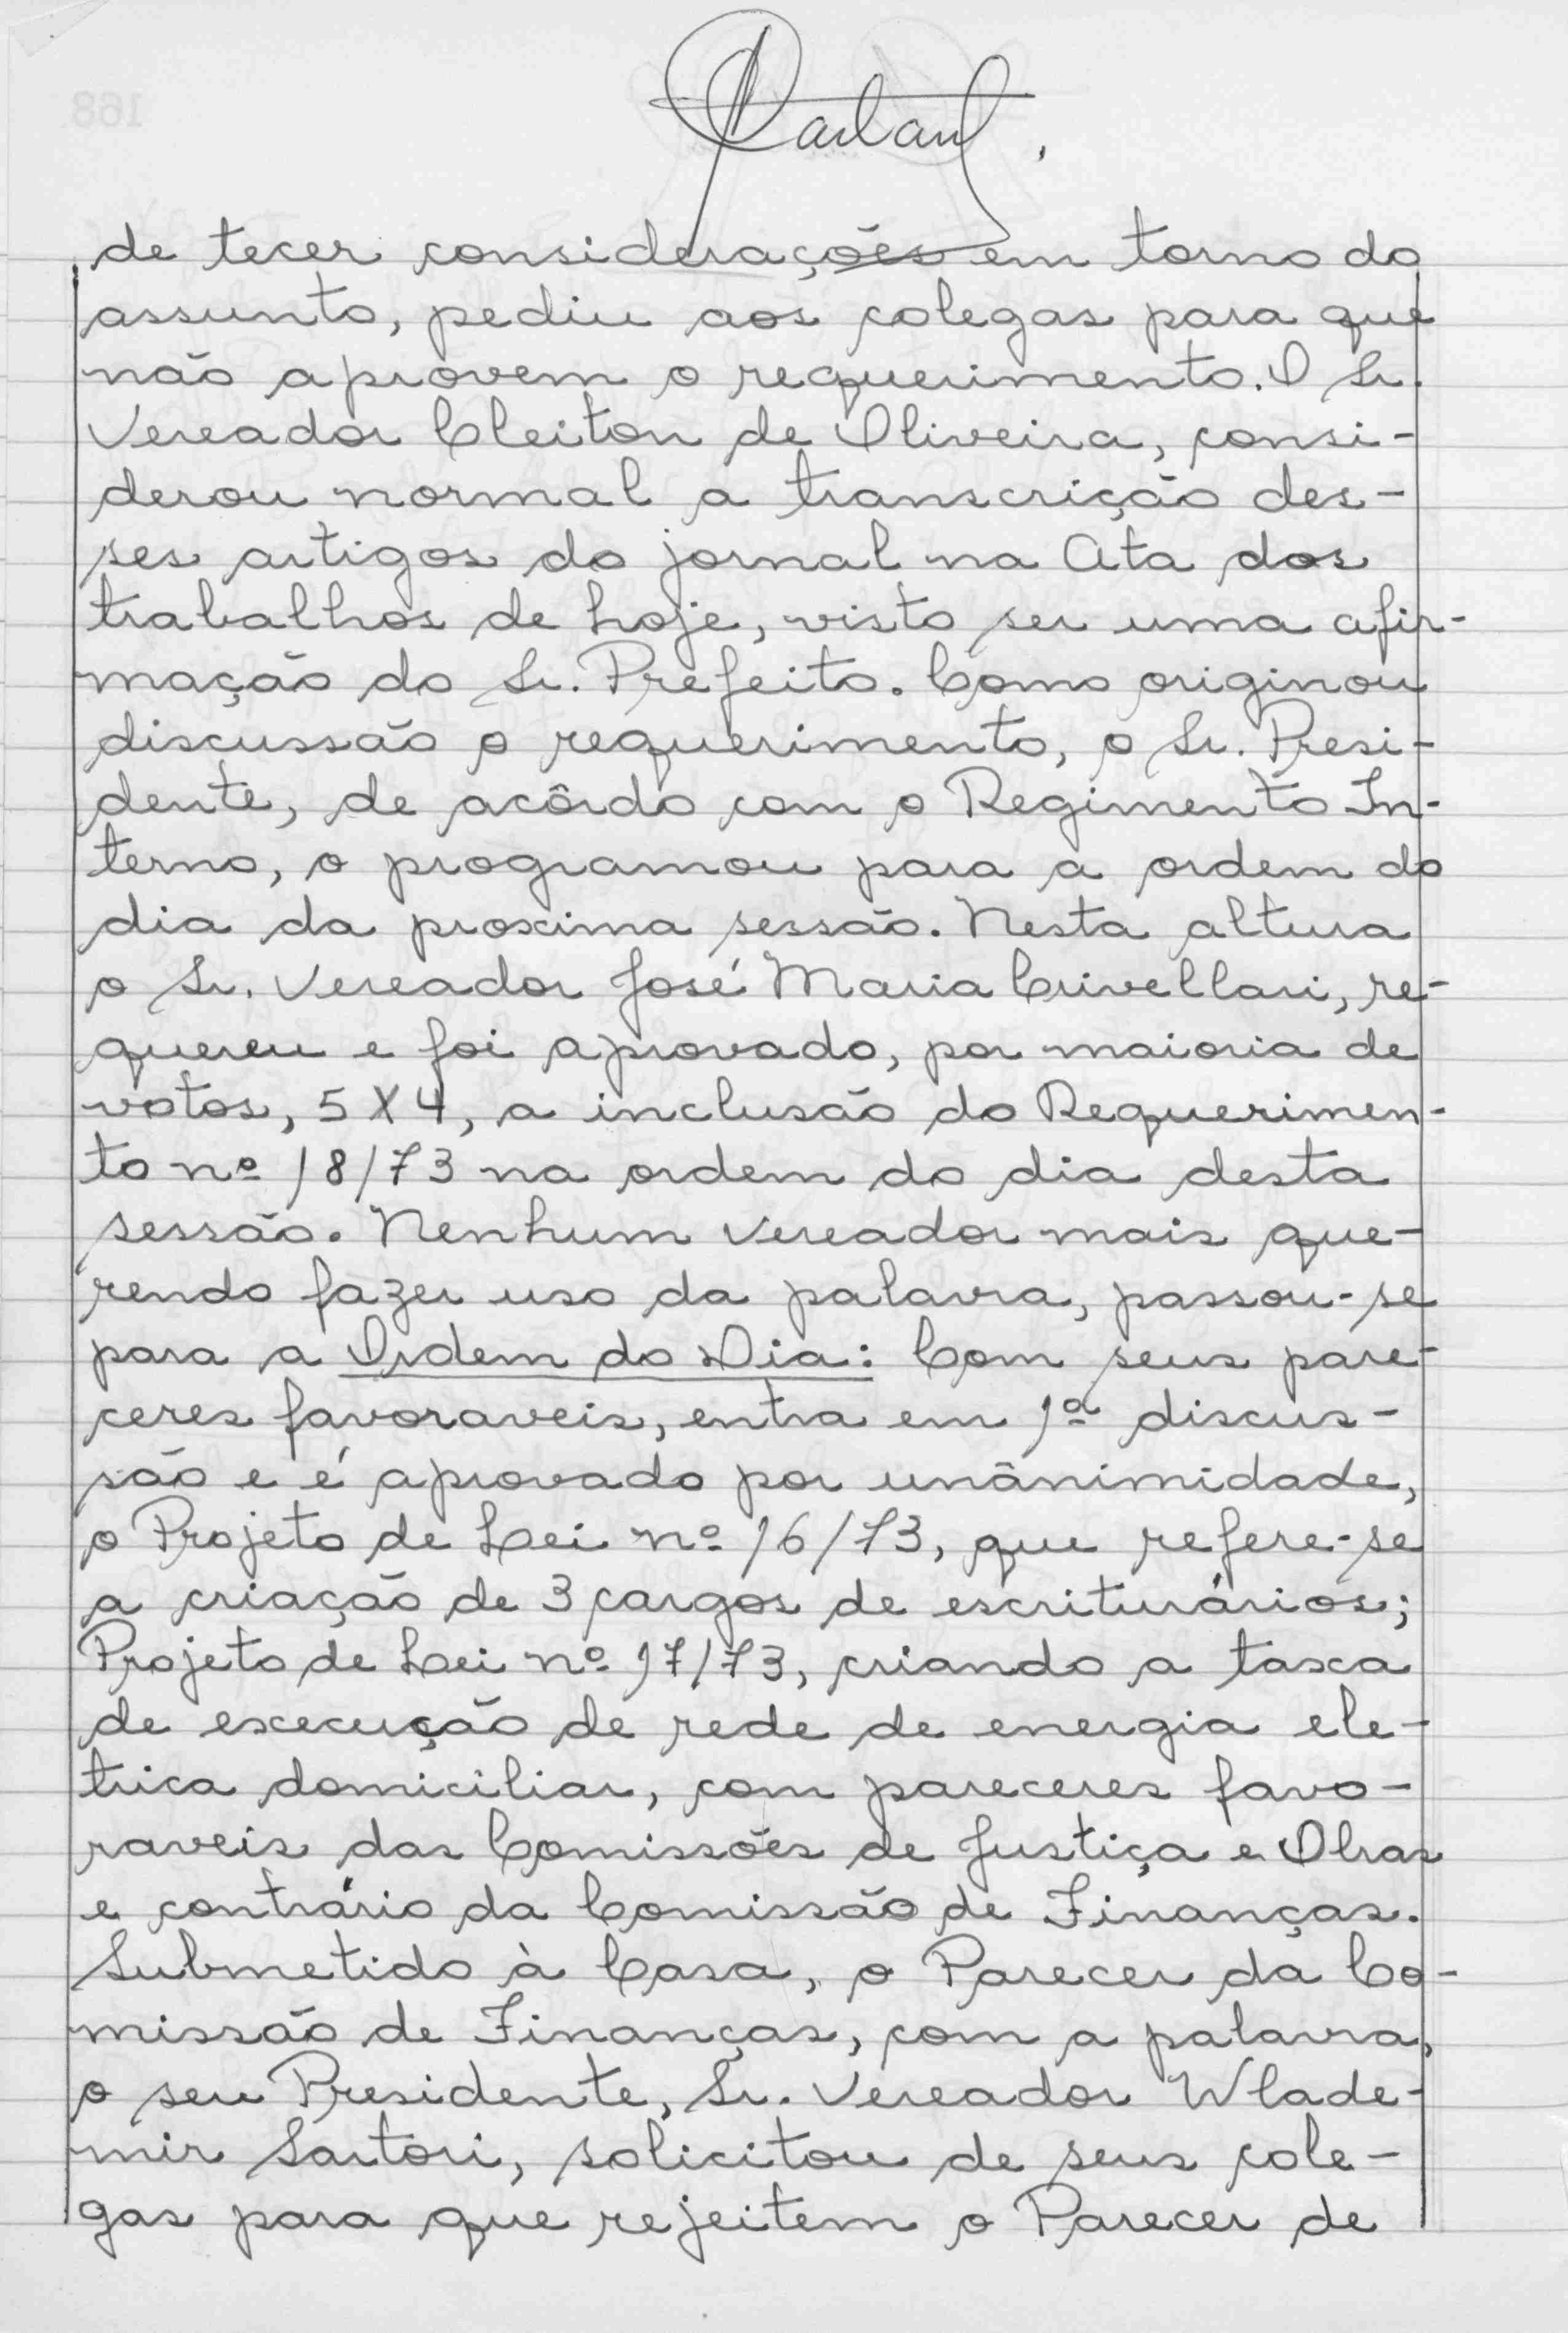 de tecer considerações em torno do
assunto, pediu aos colegas para que
não aprovem o requerimento. O Sr.
Vereador Cleiton de Oliveira, consi-
derou normal a transcrição des-
ses artigos do jornal na Ata dos
trabalhos de hoje, visto ser uma afir-
mação do Sr. Prefeito. Como originou
discussão o requerimento, o Sr. Presi-
dente, de acôrdo com o Regimento In-
terno, o programou para a ordem do
dia da proxima sessão. Nesta altura
o Sr. Vereador José Maria Crivellari, re-
quereu e foi aprovado, por maioria de
votos, 5 X 4, a inclusão do Requerimen-
to nº 18/73 na ordem do dia desta
sessão. Nenhum vereador mais que-
rendo fazer uso da palavra, passou-se
para a Ordem do Dia: Com seus pare-
ceres favoraveis, entra em 1ª discus-
são e é aprovado por unânimidade,
o Projeto de Lei nº 16/73, que refere-se
a criação de 3 cargos de escriturários;
Projeto de Lei nº 17/73, criando a taxa
de execução de rede de energia ele-
trica domiciliar, com pareceres favo-
raveis das Comissões de Justiça e Obras
e contrário da Comissão de Finanças.
Submetido à Casa, o Parecer da Co-
missão de Finanças, com a palavra,
o seu Presidente, Sr. Vereador Wlade-
mir Sartori, solicitou de seus cole-
gas para que rejeitem o Parecer de